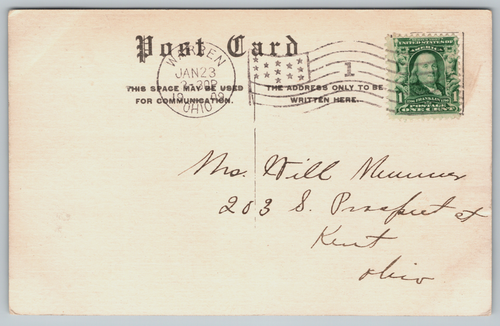 Post Card
WARREN
JAN 23
2-30P
1909
OHIO
1
THIS SPACE MAY BE USED
FOR COMMUNICATION.
THE ADDRESS ONLY TO BE
WRITTEN HERE.
UNITED STATES OF
AMERICA
POSTAGE
ONE CENT
Mrs. Will
203 S. Prospect st
Kent
Ohio